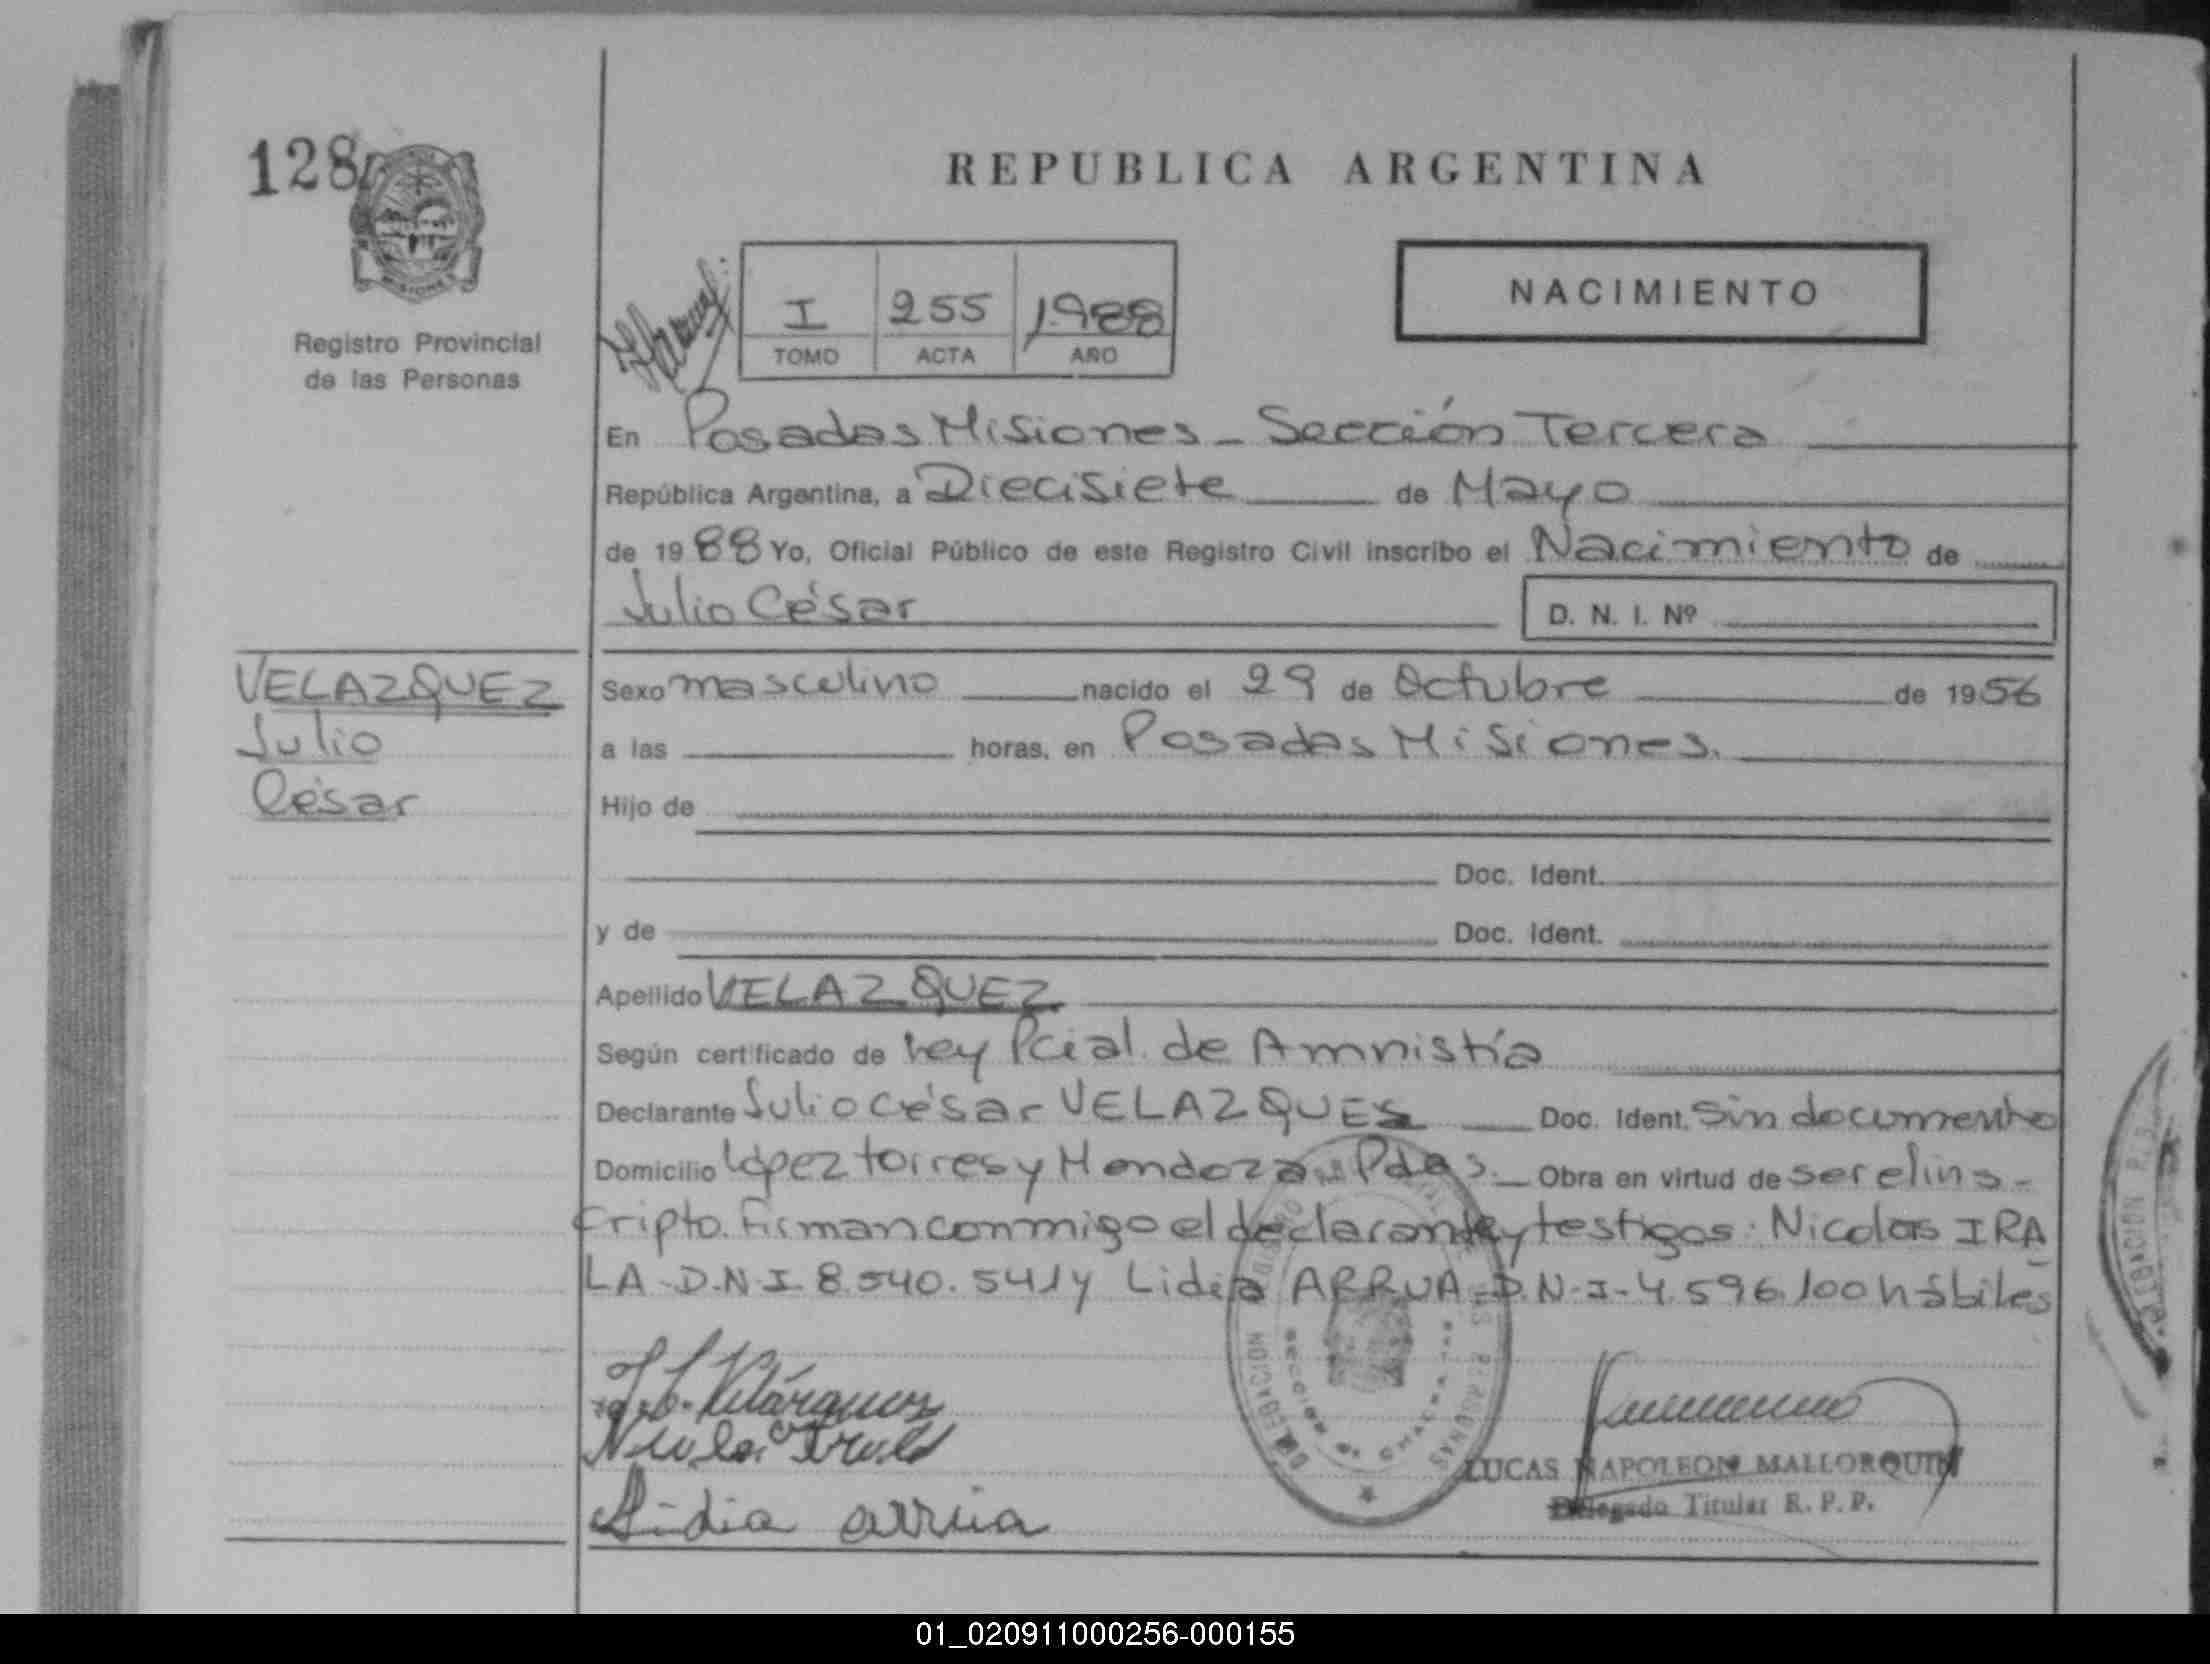 128
REPUBLICA ARGENTINA
MISIONES
Registro Provincial
de las Personas
I 255 1988
TOMO ACTA AÑO
NACIMIENTO
En Posadas Misiones - Sección Tercera
República Argentina, a Diecisiete de Mayo
de 1988 Yo, Oficial Público de este Registro Civil inscribo el Nacimiento de
Julio César D. N. I. Nº
VELAZQUEZ
Julio
César
Sexo masculino nacido el 29 de Octubre de 1956
a las horas, en Posadas Misiones.
Hijo de
Doc. Ident.
y de Doc. Ident.
Apellido VELAZQUEZ
Según certificado de Ley Pcial. de Amnistía
Declarante Julio César VELAZQUES Doc. Ident. Sin documento
Domicilio López torres y Mendoza Pdas. Obra en virtud de ser el ins-
cripto. Firman conmigo el declarante y testigos: Nicolas IRA
LA - D.N.I 8.540.541 y Lidia ARRUA - D.N.I - 4.596.100 hábiles
Lidia arrua
LUCAS NAPOLEON MALLORQUIN
Delegado Titular R. P. P.
01_020911000256-000155